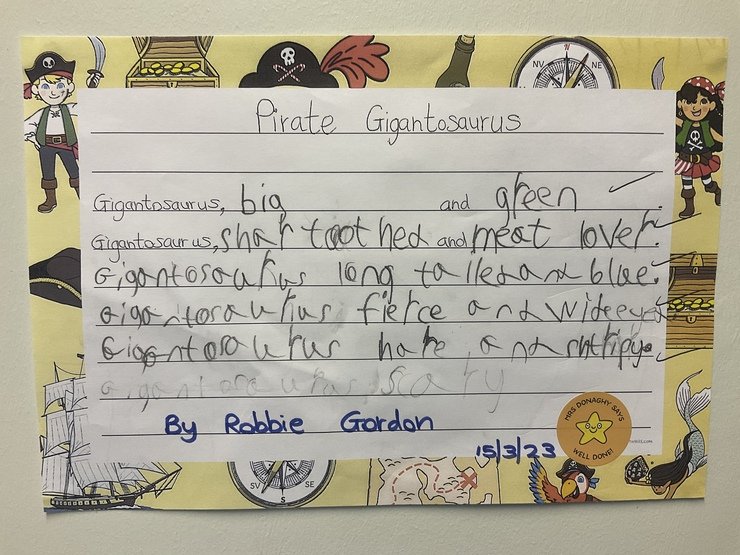 NV N NE
Pirate Gigantosaurus
Gigantosaurus, big and green.
Gigantosaurus, shar toothed and meat lover.
Gigantosaurus long talled and blue.
Gigantosaurus fierce and wideeyed
Gigantosaurus and
Gigantosaurus scary
By Robbie Gordon
15/3/23
MRS DONAGHY SAYS
WELL DONE!
SV S SE